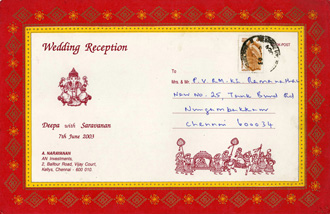 Wedding Reception
Deepa with Saravanan
7th June 2003
A. NARAYANAN
AN Investments,
2, Balfour Road, Vijay Court,
Kellys, Chennai - 600 010
POST
To
P.V.RM.
New No. 25, Tank Bund Rd
Nungambakkam
Chennai 600034